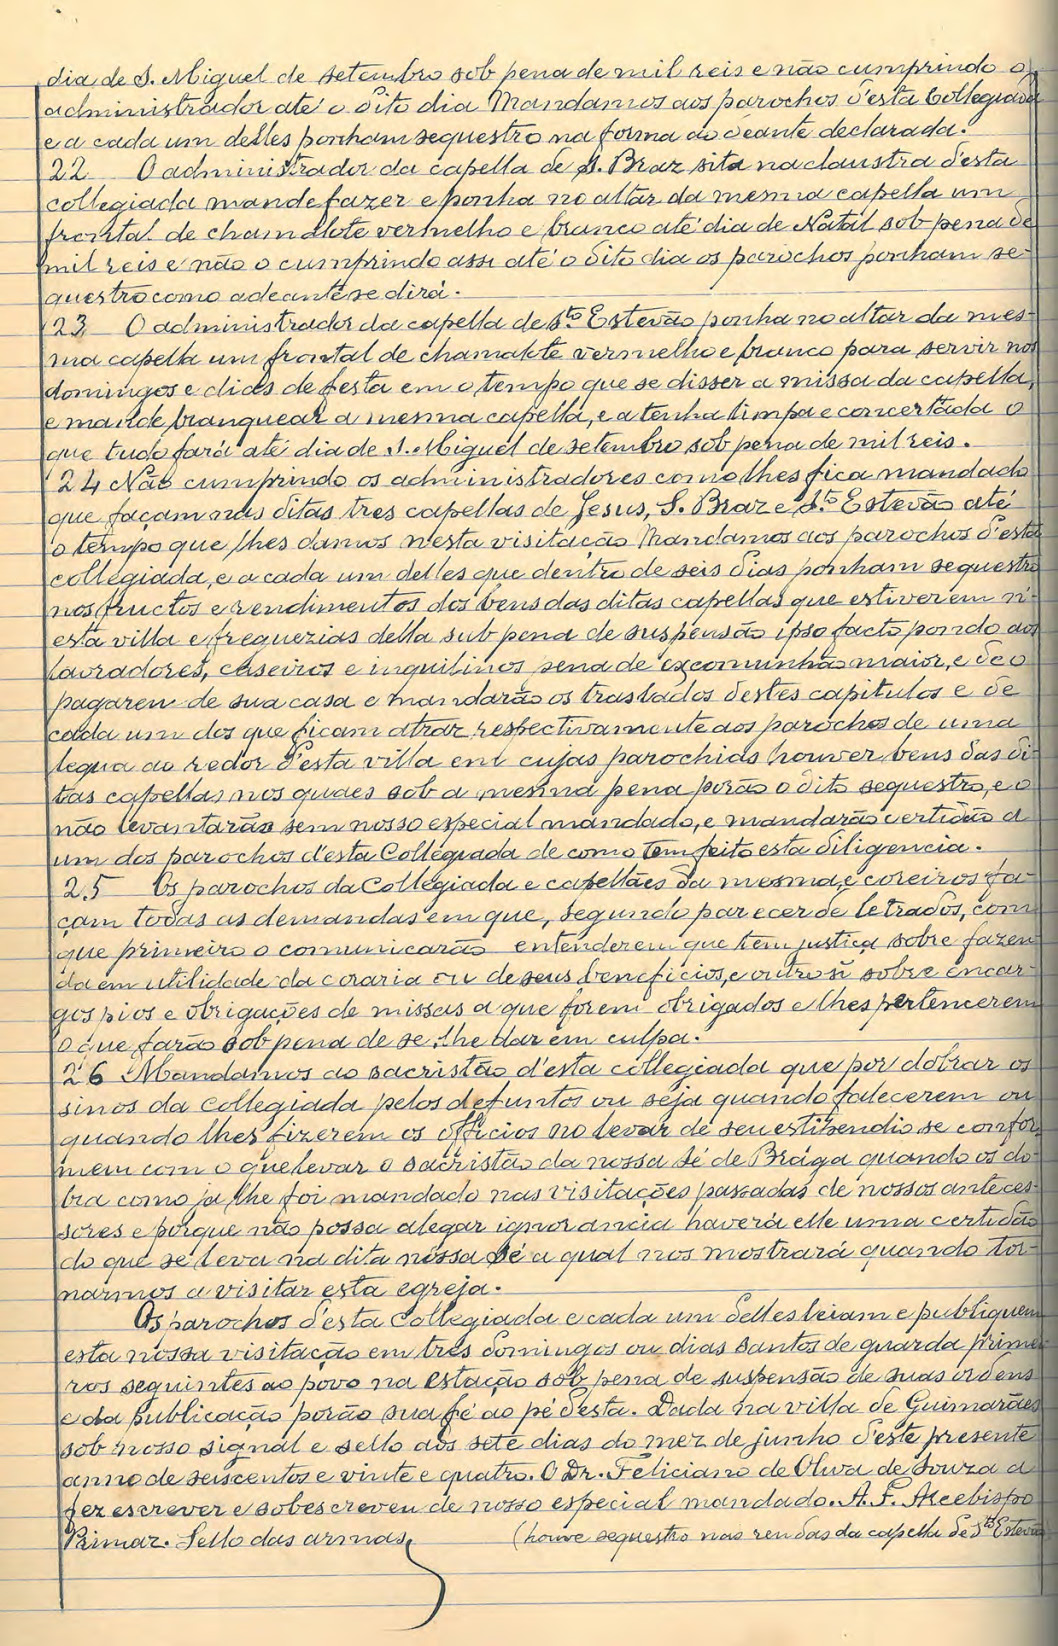 dia de S. Miguel de setembro sob pena de mil reis e não cumprindo o
administrador até o dito dia Mandamos aos parochos d'esta Collegiada
e a cada um delles ponham sequestro na forma ao deante declarada.
22 O administrador da capella de S. Braz sita na claustra d'esta
collegiada mande fazer e ponha no altar da mesma capella um
frontal de chamalote vermelho e branco até dia de Natal sob pena de
mil reis e não o cumprindo assi até o dito dia os parochos ponham se-
questro como adeante se dirá.
23 O administrador da capella de Sto Estevão ponha no altar da mes-
ma capella um frontal de chamalote vermelho e branco para servir nos
domingos e dias de festa em o tempo que se disser a missa da capella,
e mande branquear a mesma capella, e a tenha limpa e concertada o
que tudo fará até dia de S. Miguel de setembro sob pena de mil reis.
24 Não cumprindo os administradores como lhes fica mandado
que façam nas ditas tres capellas de Jesus, S. Braz e Sto Estevão até
o tempo que lhes damos n'esta visitação Mandamos aos parochos d'esta
collegiada, e a cada um delles que dentro de seis dias ponham sequestro
nos fructos e rendimentos dos bens das ditas capellas que estiverem n'-
esta villa e freguezias della sub pena de suspensão ipso facto pondo aos
lavradores, caseiros e inquilinos pena de excommunhão maior, e de o
pagarem de sua casa e mandarão os traslados destes capitulos e de
cada um dos que ficam atraz respectivamente aos parochos de uma
legua ao redor d'esta villa em cujas parochias houver bens das di-
tas capellas nos quaes sob a mesma pena porão o dito sequestro, e o
não levantarão sem nosso especial mandado, e mandarão certidão a
um dos parochos d'esta Collegiada de como tem feito esta diligencia.
25 Os parochos da Collegiada e capellães da mesma, e coreiros fa-
çam todas as demandas em que, segundo parecer de letrados, com
que primeiro o comunicarão entenderem que tem justiça sobre fazen-
da em utilidade da coraria ou de seus beneficios, e outro si sobre encar-
gos pios e obrigações de missas a que forem obrigados e lhes pertencerem
o que farão sob pena de se lhe dar em culpa.
26 Mandamos ao sacristão d'esta collegiada que por dobrar os
sinos da collegiada pelos defuntos ou seja quando falecerem ou
quando lhes fizerem os officios no levar de seu estipendio se confor-
mem com o que levar o sacristão da nossa sé de Braga quando os do-
bra como ja lhe foi mandado nas visitações passadas de nossos anteces-
sores e porque não possa alegar ignorancia haverá elle uma certidão
do que se leva na dita nossa Sé a qual nos mostrará quando tor-
narmos a visitar esta egreja.
Os parochos d'esta Collegiada e cada um delles leiam e publiquem
esta nossa visitação em tres domingos ou dias santos de guarda primei-
ros seguintes ao povo na estação sob pena de suspensão de suas ordens
e da publicação porão sua fé ao pé desta. Dada na villa de Guimarães
sob nosso signal e sello aos sete dias do mez de junho d'este presente
anno de seiscentos e vinte e quatro. O Dr. Feliciano de Oliva de Souza a
fez escrever e sobescreveu de nosso especial mandado. A. F. Arcebispo
Primaz. Sello das armas.
(houve sequestro nas rendas da capella de Sto Estevão